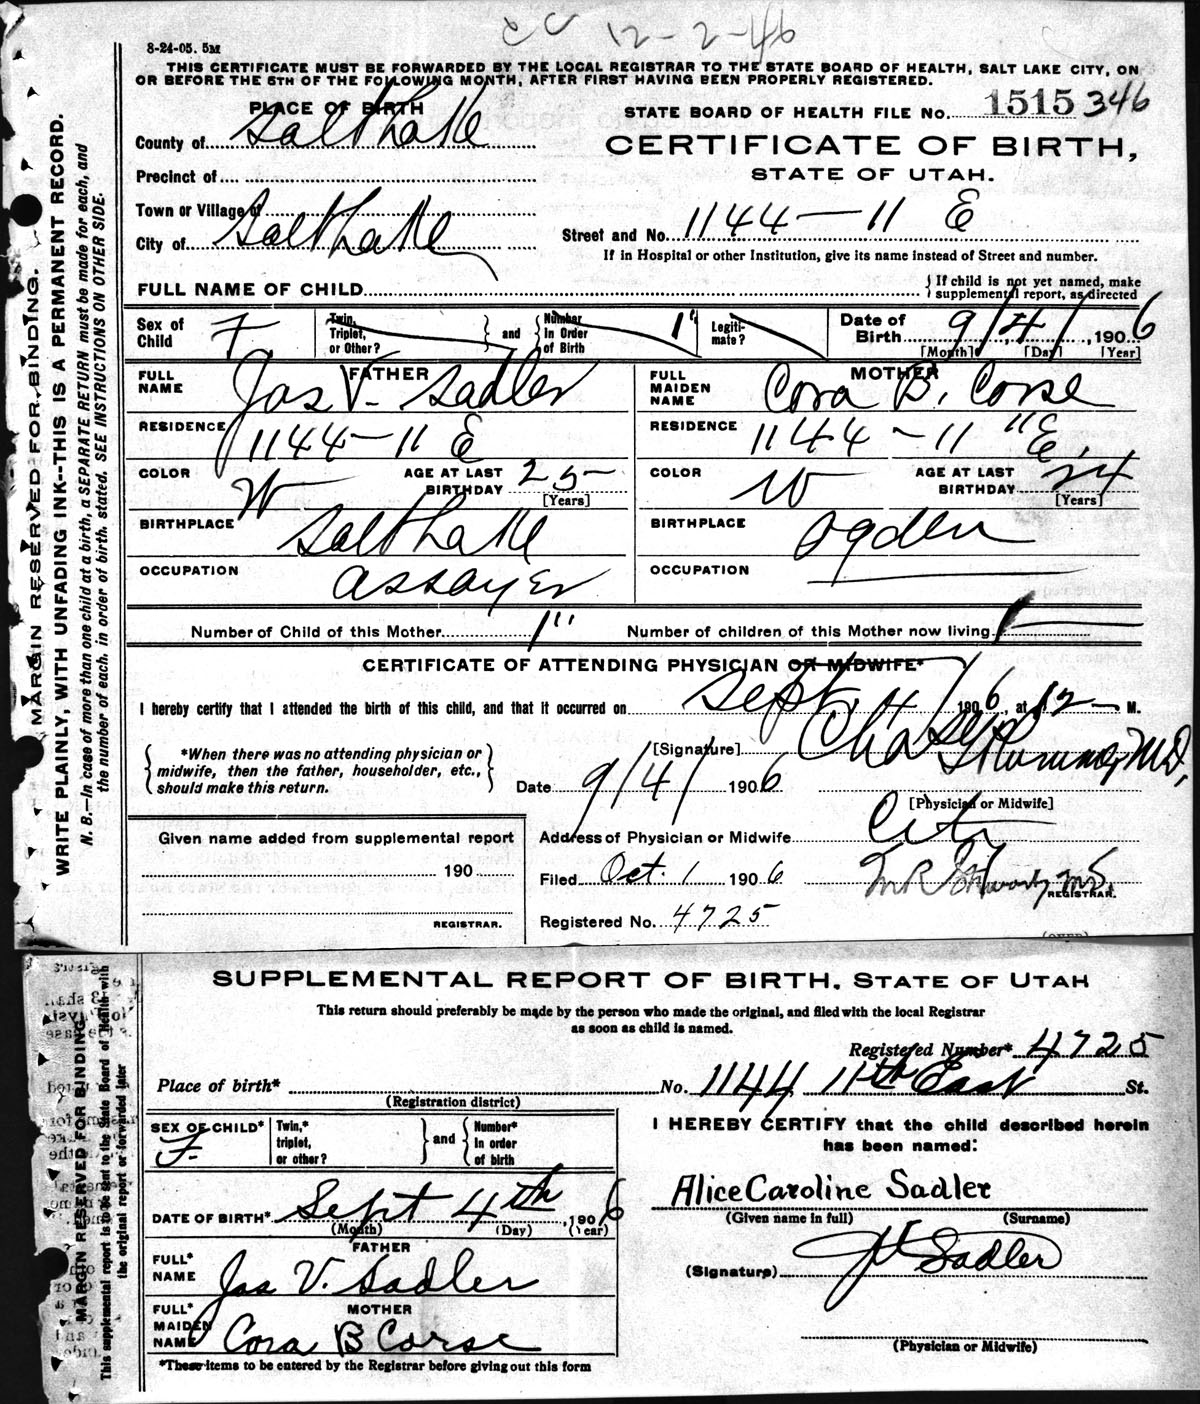 CC 12-2-46
8-24-05. 5M
THIS CERTIFICATE MUST BE FORWARDED BY THE LOCAL REGISTRAR TO THE STATE BOARD OF HEALTH, SALT LAKE CITY, ON
OR BEFORE THE 5TH OF THE FOLLOWING MONTH, AFTER FIRST HAVING BEEN PROPERLY REGISTERED.
PLACE OF BIRTH
STATE BOARD OF HEALTH FILE No. 1515 346
County of Salt Lake
CERTIFICATE OF BIRTH,
Precinct of
STATE OF UTAH.
Town or Village of
City of Salt Lake
Street and No. 1144 — 11 E
If in Hospital or other Institution, give its name instead of Street and number.
FULL NAME OF CHILD
{ If child is not yet named, make
supplemental report, as directed
Sex of Child F
Twin, Triplet, or Other? } and { Number In Order of Birth 1"
Legiti-mate?
Date of Birth 9/4/, 1906
[Month] [Day] [Year]
FATHER
FULL NAME Jas V. Sadler
RESIDENCE 1144 — 11 E
COLOR W
AGE AT LAST BIRTHDAY 25
[Years]
BIRTHPLACE Salt Lake
OCCUPATION assayer
MOTHER
FULL MAIDEN NAME Cora B. Corse
RESIDENCE 1144 — 11" E.
COLOR W
AGE AT LAST BIRTHDAY 24
[Years]
BIRTHPLACE Ogden
OCCUPATION
Number of Child of this Mother 1"
Number of children of this Mother now living 1
CERTIFICATE OF ATTENDING PHYSICIAN OR MIDWIFE*
I hereby certify that I attended the birth of this child, and that it occurred on Sept. 4/ 1906, at 12 — M.
{ *When there was no attending physician or
midwife, then the father, householder, etc.,
should make this return. }
[Signature] Chas M.D.
Date 9/4/ 1906
[Physician or Midwife]
Given name added from supplemental report
190
REGISTRAR.
Address of Physician or Midwife City
Filed Oct. 1 1906
REGISTRAR.
Registered No. 4725
(OVER)
MARGIN RESERVED FOR BINDING.
WRITE PLAINLY, WITH UNFADING INK--THIS IS A PERMANENT RECORD.
N. B.—In case of more than one child at a birth, a SEPARATE RETURN must be made for each, and
the number of each, in order of birth, stated. SEE INSTRUCTIONS ON OTHER SIDE.
SUPPLEMENTAL REPORT OF BIRTH. STATE OF UTAH
This return should preferably be made by the person who made the original, and filed with the local Registrar
as soon as child is named.
Registered Number* 4725
Place of birth* No. 1144 11th East St.
(Registration district)
SEX OF CHILD* F.
Twin,* triplet, or other? } and { Number* In order of birth
DATE OF BIRTH* Sept 4th, 1906
(Month) (Day) (Year)
FATHER
FULL* NAME Jas V. Sadler
MOTHER
FULL* MAIDEN NAME Cora B Corse
*These items to be entered by the Registrar before giving out this form
I HEREBY CERTIFY that the child described herein
has been named:
Alice Caroline Sadler
(Given name in full) (Surname)
(Signature) J V Sadler
(Physician or Midwife)
MARGIN RESERVED FOR BINDING.
This supplemental report is to be sent to the State Board of Health with
the original report or forwarded later